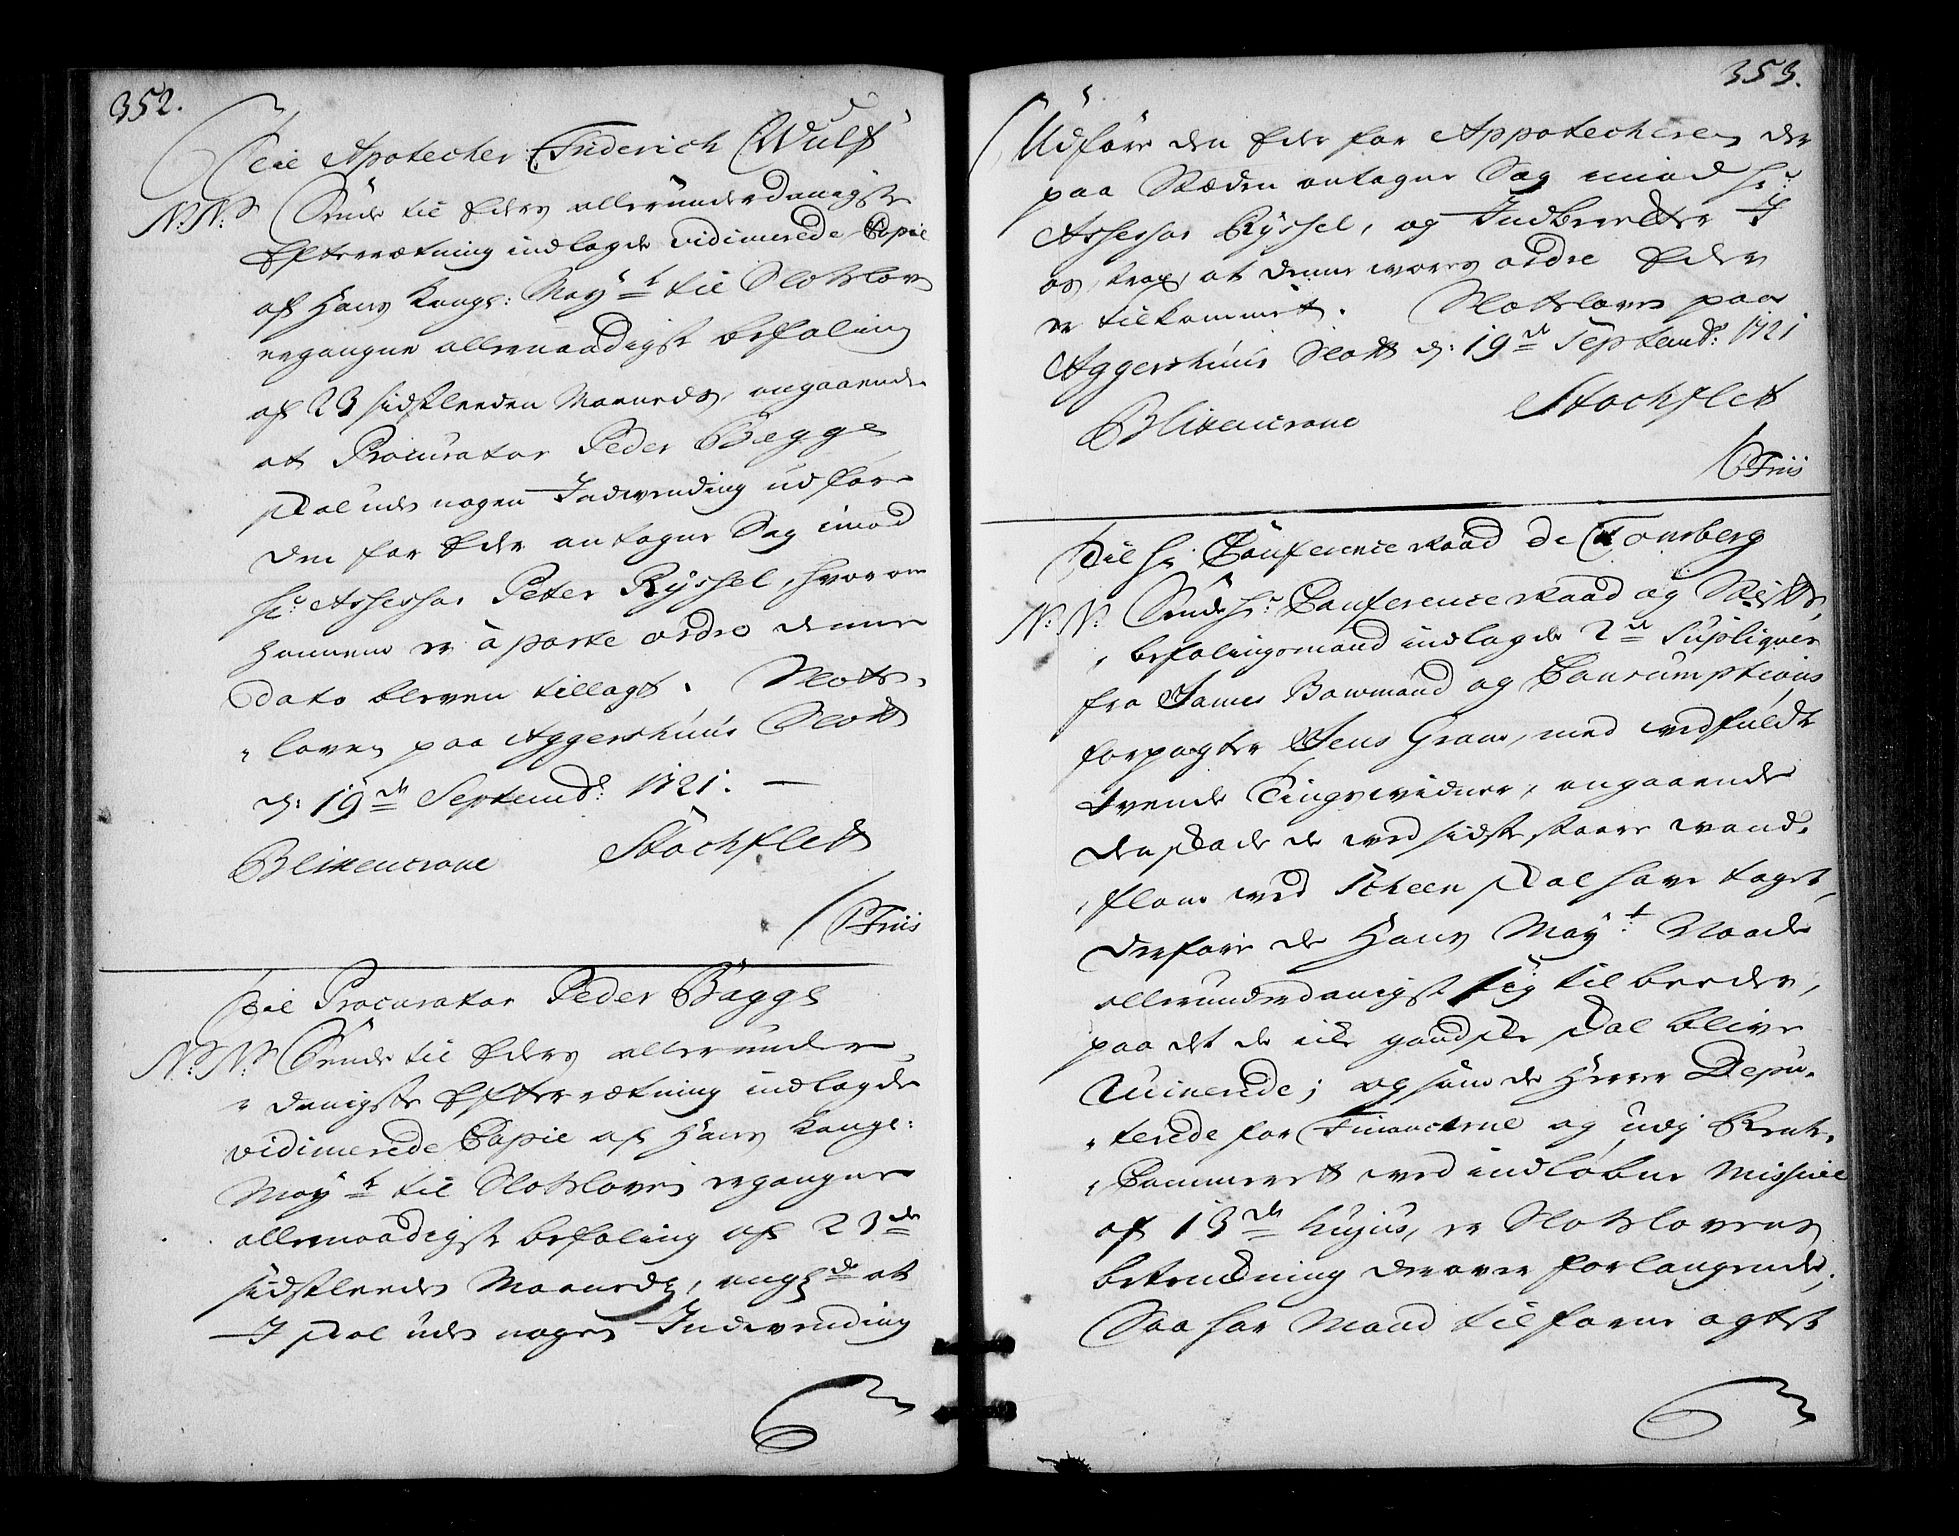 352.
Til Apotecher Friderich Wulf
N: N: Sende til Eders allerunderdanigste
Efterrætning indlagde vidimerede Copie
af Hans Kongl: May:t til Slotsloven
ergangne allernaadigste befaling
af 23 sidstleeden Maaneds, angaaende
at Procurator Peder Bagge
skal uden nogen Indvending udføre
den for Eder antagne Sag imod
Hr: Assessor Peter Ryssel, hvorom
hannem er à parte ordre denne
Dato bleven tillagt. Slots-
loven paa Aggershuus Slott
d: 19de Septemb: 1721. —
Blixencrone Stochflett
PFriis
Til Procurator Peder Bagge
N: N: Sende til Eders allerunder-
danigste Efterrætning indlagde
vidimerede Copie af Hans Kongl:
May:t til Slotsloven ergangne
allernaadigste befaling af 23de
sidstleeden Maaneds, angl:de at
I skal uden nogen Indvending
353.
Udføre den Eder for Appotecheren der
paa Stæden antagne Sag imod Hr:
Assessor Ryssel, og Indberetter I
os, strax, at denne vores ordre Eder
er tilkommet. Slotsloven paa
Aggershuus Slott d: 19de Septemb: 1721
Blixencrone Stochflett
PFriis
Til Hr Conference Raad de Tonsberg
N: N: Sende Hr: Conference Raad og Stifts
befalingsmand indlagde 2de Supliqver
fra James Bowmand og Consumptions
forpagter Jens Gram, med vedfulde
tvende Tingsvidner, angaaende
den skade de ved sidste skaare vand-
flom ved Scheen skal have taget,
derfore de Hans May:t Naade
allerunderdanigst sig til beeder,
paa det de icke gandske skal blive
Ruinerede; og som de Herrer Depu-
terede for Financerne og udj Rente-
Cammeret ved indløbne Missive
af 13de hujus, er Slotslovens
betenckning derover forlangende,
Saa har Mand tilforn agtet